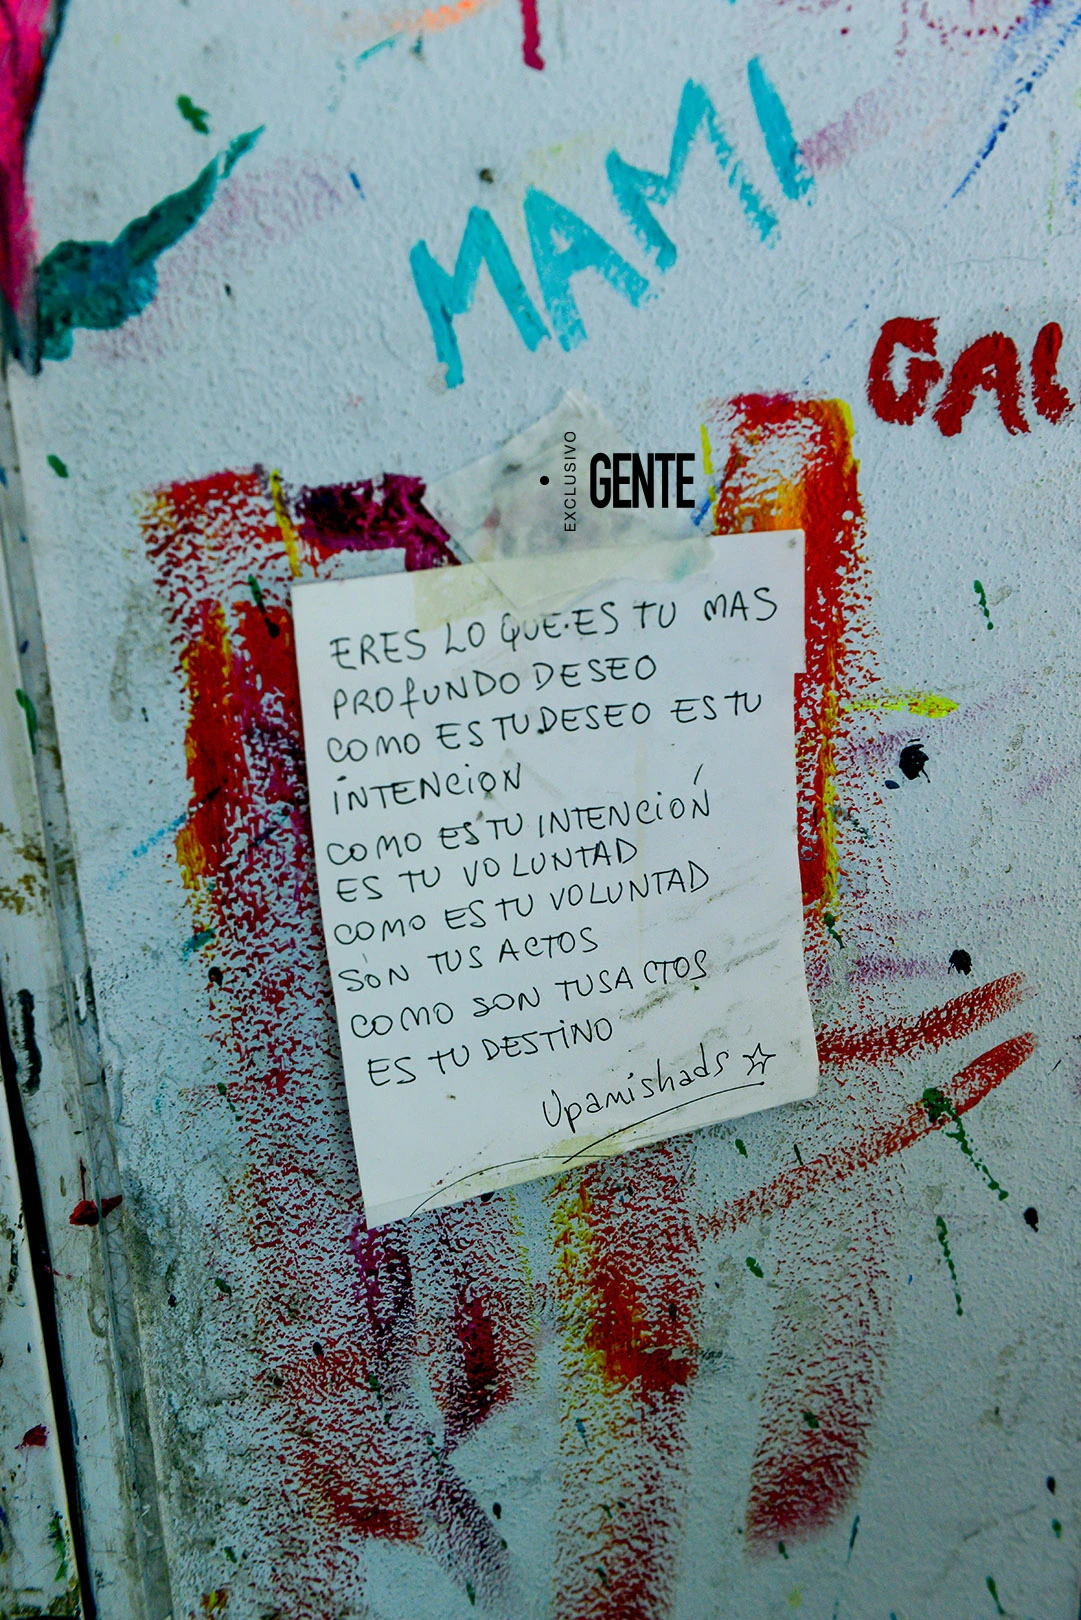 MAMI
GAL
EXCLUSIVO
GENTE
ERES LO QUE ES TU MAS
PROFUNDO DESEO
COMO ES TU DESEO ES TU
INTENCION
COMO ES TU INTENCIÓN
ES TU VOLUNTAD
COMO ES TU VOLUNTAD
SON TUS ACTOS
COMO SON TUS ACTOS
ES TU DESTINO
Upamishads